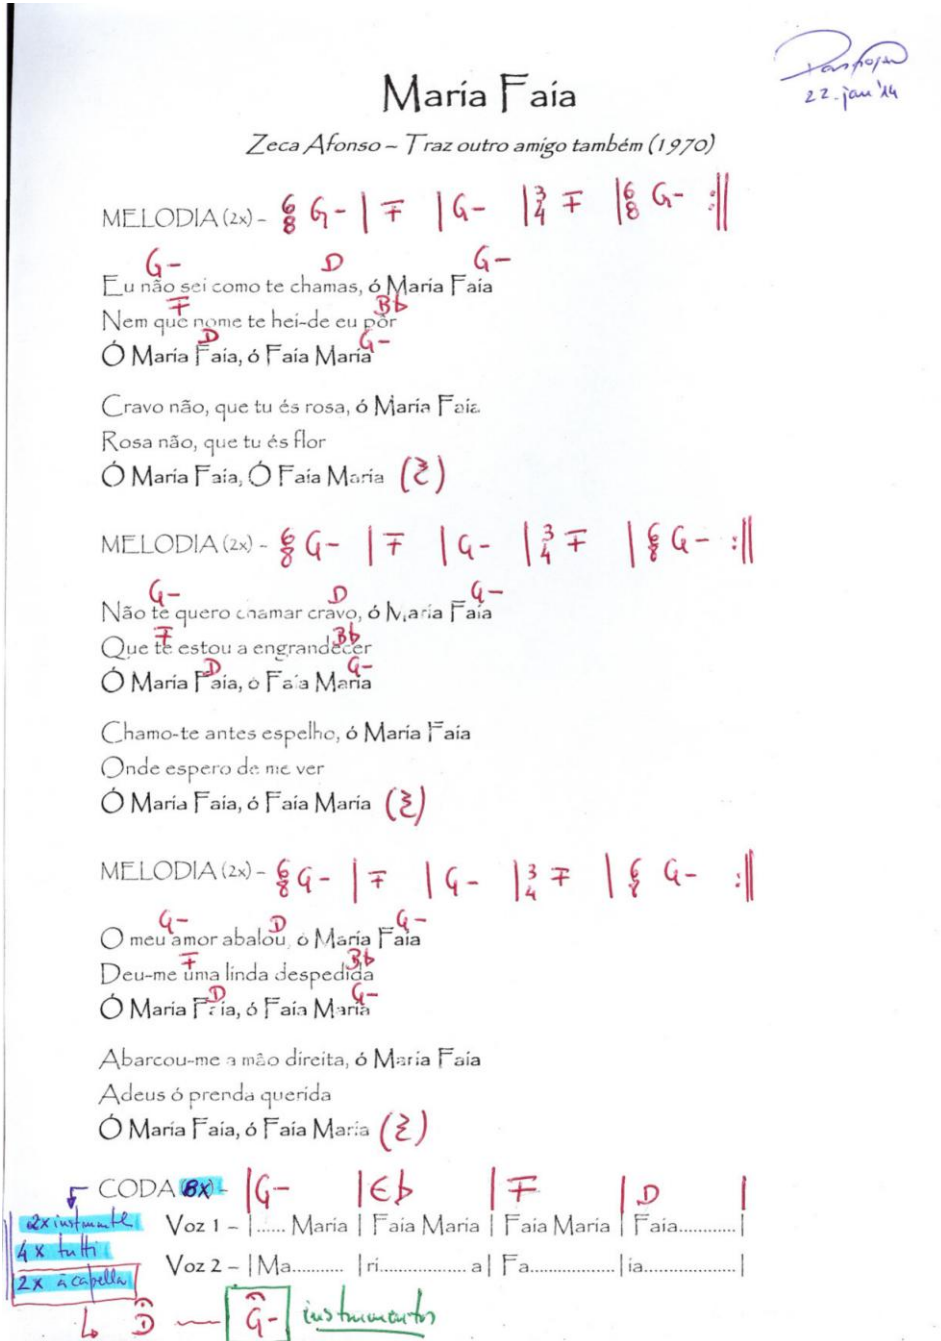 Maria Faia
22-jan'14
Zeca Afonso – Traz outro amigo também (1970)
MELODIA (2x) – 6/8 G- | F | G- | 3/4 F | 6/8 G- :||
G- D G-
Eu não sei como te chamas, ó Maria Faia
F Bb
Nem que nome te hei-de eu pôr
D G-
Ó Maria Faia, ó Faia Maria
Cravo não, que tu és rosa, ó Maria Faia
Rosa não, que tu és flor
Ó Maria Faia, Ó Faia Maria (𝄽)
MELODIA (2x) – 6/8 G- | F | G- | 3/4 F | 6/8 G- :||
G- D G-
Não te quero chamar cravo, ó Maria Faia
F Bb
Que te estou a engrandecer
D G-
Ó Maria Faia, ó Faia Maria
Chamo-te antes espelho, ó Maria Faia
Onde espero de me ver
Ó Maria Faia, ó Faia Maria (𝄽)
MELODIA (2x) – 6/8 G- | F | G- | 3/4 F | 6/8 G- :||
G- D G-
O meu amor abalou, ó Maria Faia
F Bb
Deu-me uma linda despedida
D G-
Ó Maria Faia, ó Faia Maria
Abarcou-me a mão direita, ó Maria Faia
Adeus ó prenda querida
Ó Maria Faia, ó Faia Maria (𝄽)
CODA (8x) – | G- | Eb | F | D |
2x instrumental
Voz 1 – |...... Maria | Faia Maria | Faia Maria | Faia............ |
4x tutti
Voz 2 – | Ma........... | ri................. a | Fa.................. | ia.................... |
2x à capella
↳ D — G- instrumentos